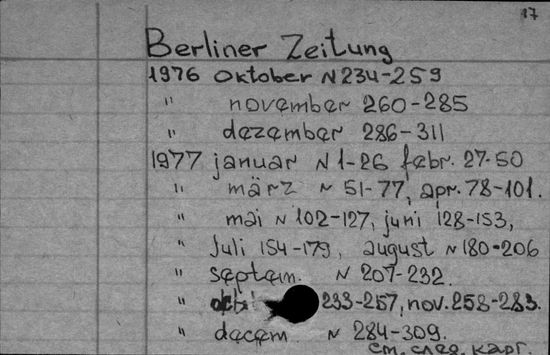 17
Berliner Zeitung
1976 Oktober N 234-259
" november 260-285
" dezember 286-311
1977 januar N 1-26 febr. 27-50
" märz N 51-77, apr. 78-101.
" mai N 102-127, juni 128-153,
" Juli 154-179, august N 180-206
" septem. N 207-232.
" 233-257, nov. 258-283.
" decem. N 284-309.
см. след. карт.